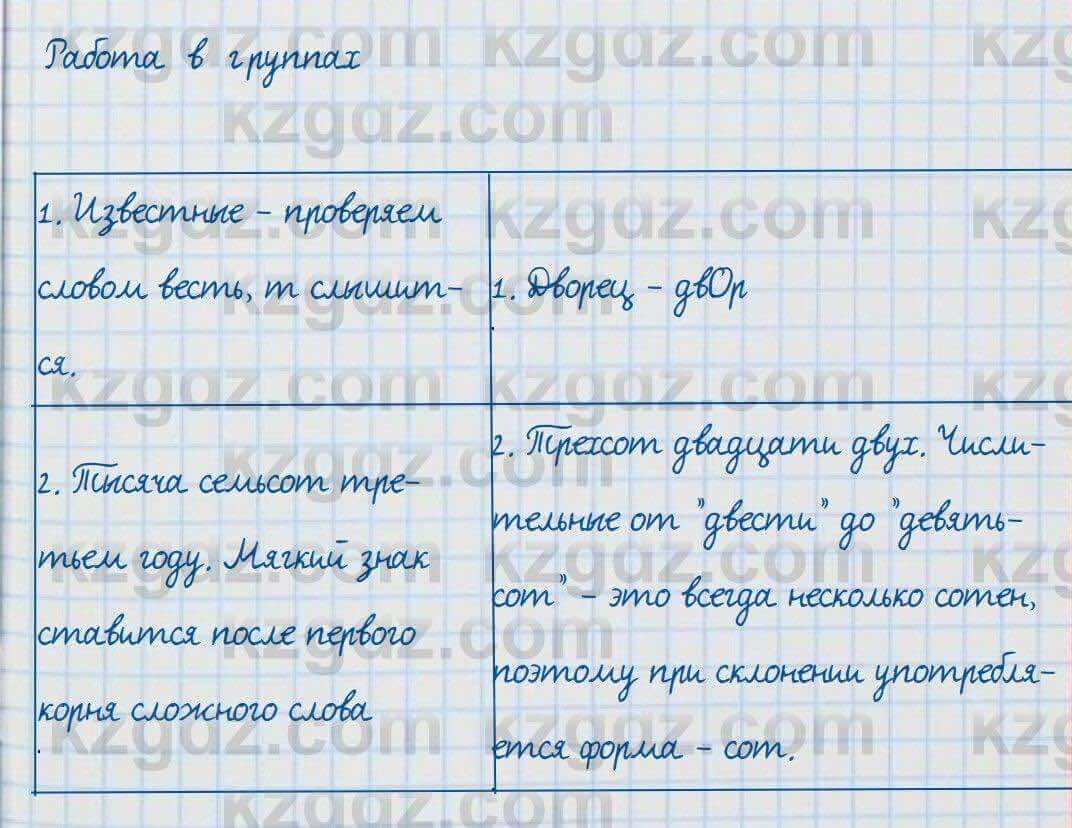 Работа в группах
kzgaz.com
1. Известные - проверяем
словом весть, т слышит-
ся.
1. Дворец - двОр
2. Тысяча семьсот тре-
тьем году. Мягкий знак
ставится после первого
корня сложного слова
.
2. Трехсот двадцати двух. Числи-
тельные от "двести" до "девять-
сот" - это всегда несколько сотен,
поэтому при склонении употребля-
ется форма - сот.